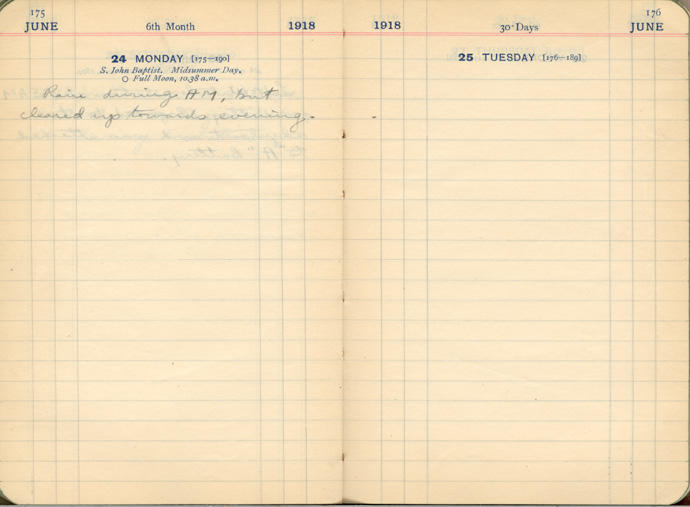 175
JUNE 6th Month 1918
24 MONDAY [175—190]
S. John Baptist. Midsummer Day.
○ Full Moon, 10.38 a.m.
Rain during AM, but
cleared up towards evening.
176
1918 30 Days JUNE
25 TUESDAY [176—189]